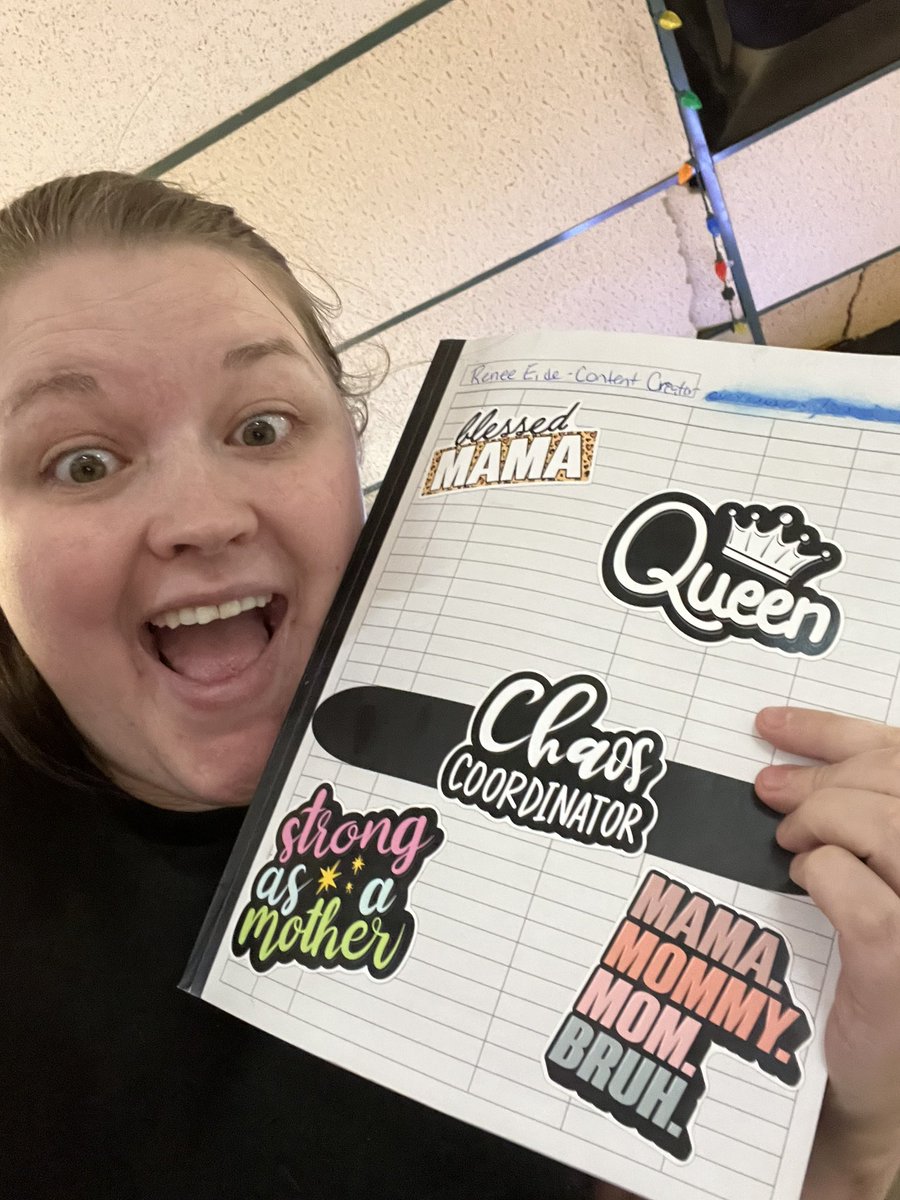 Renee Eide - Content Creator
blessed
MAMA
Queen
Chaos
COORDINATOR
strong
as a
mother
MAMA.
MOMMY.
MOM.
BRUH.